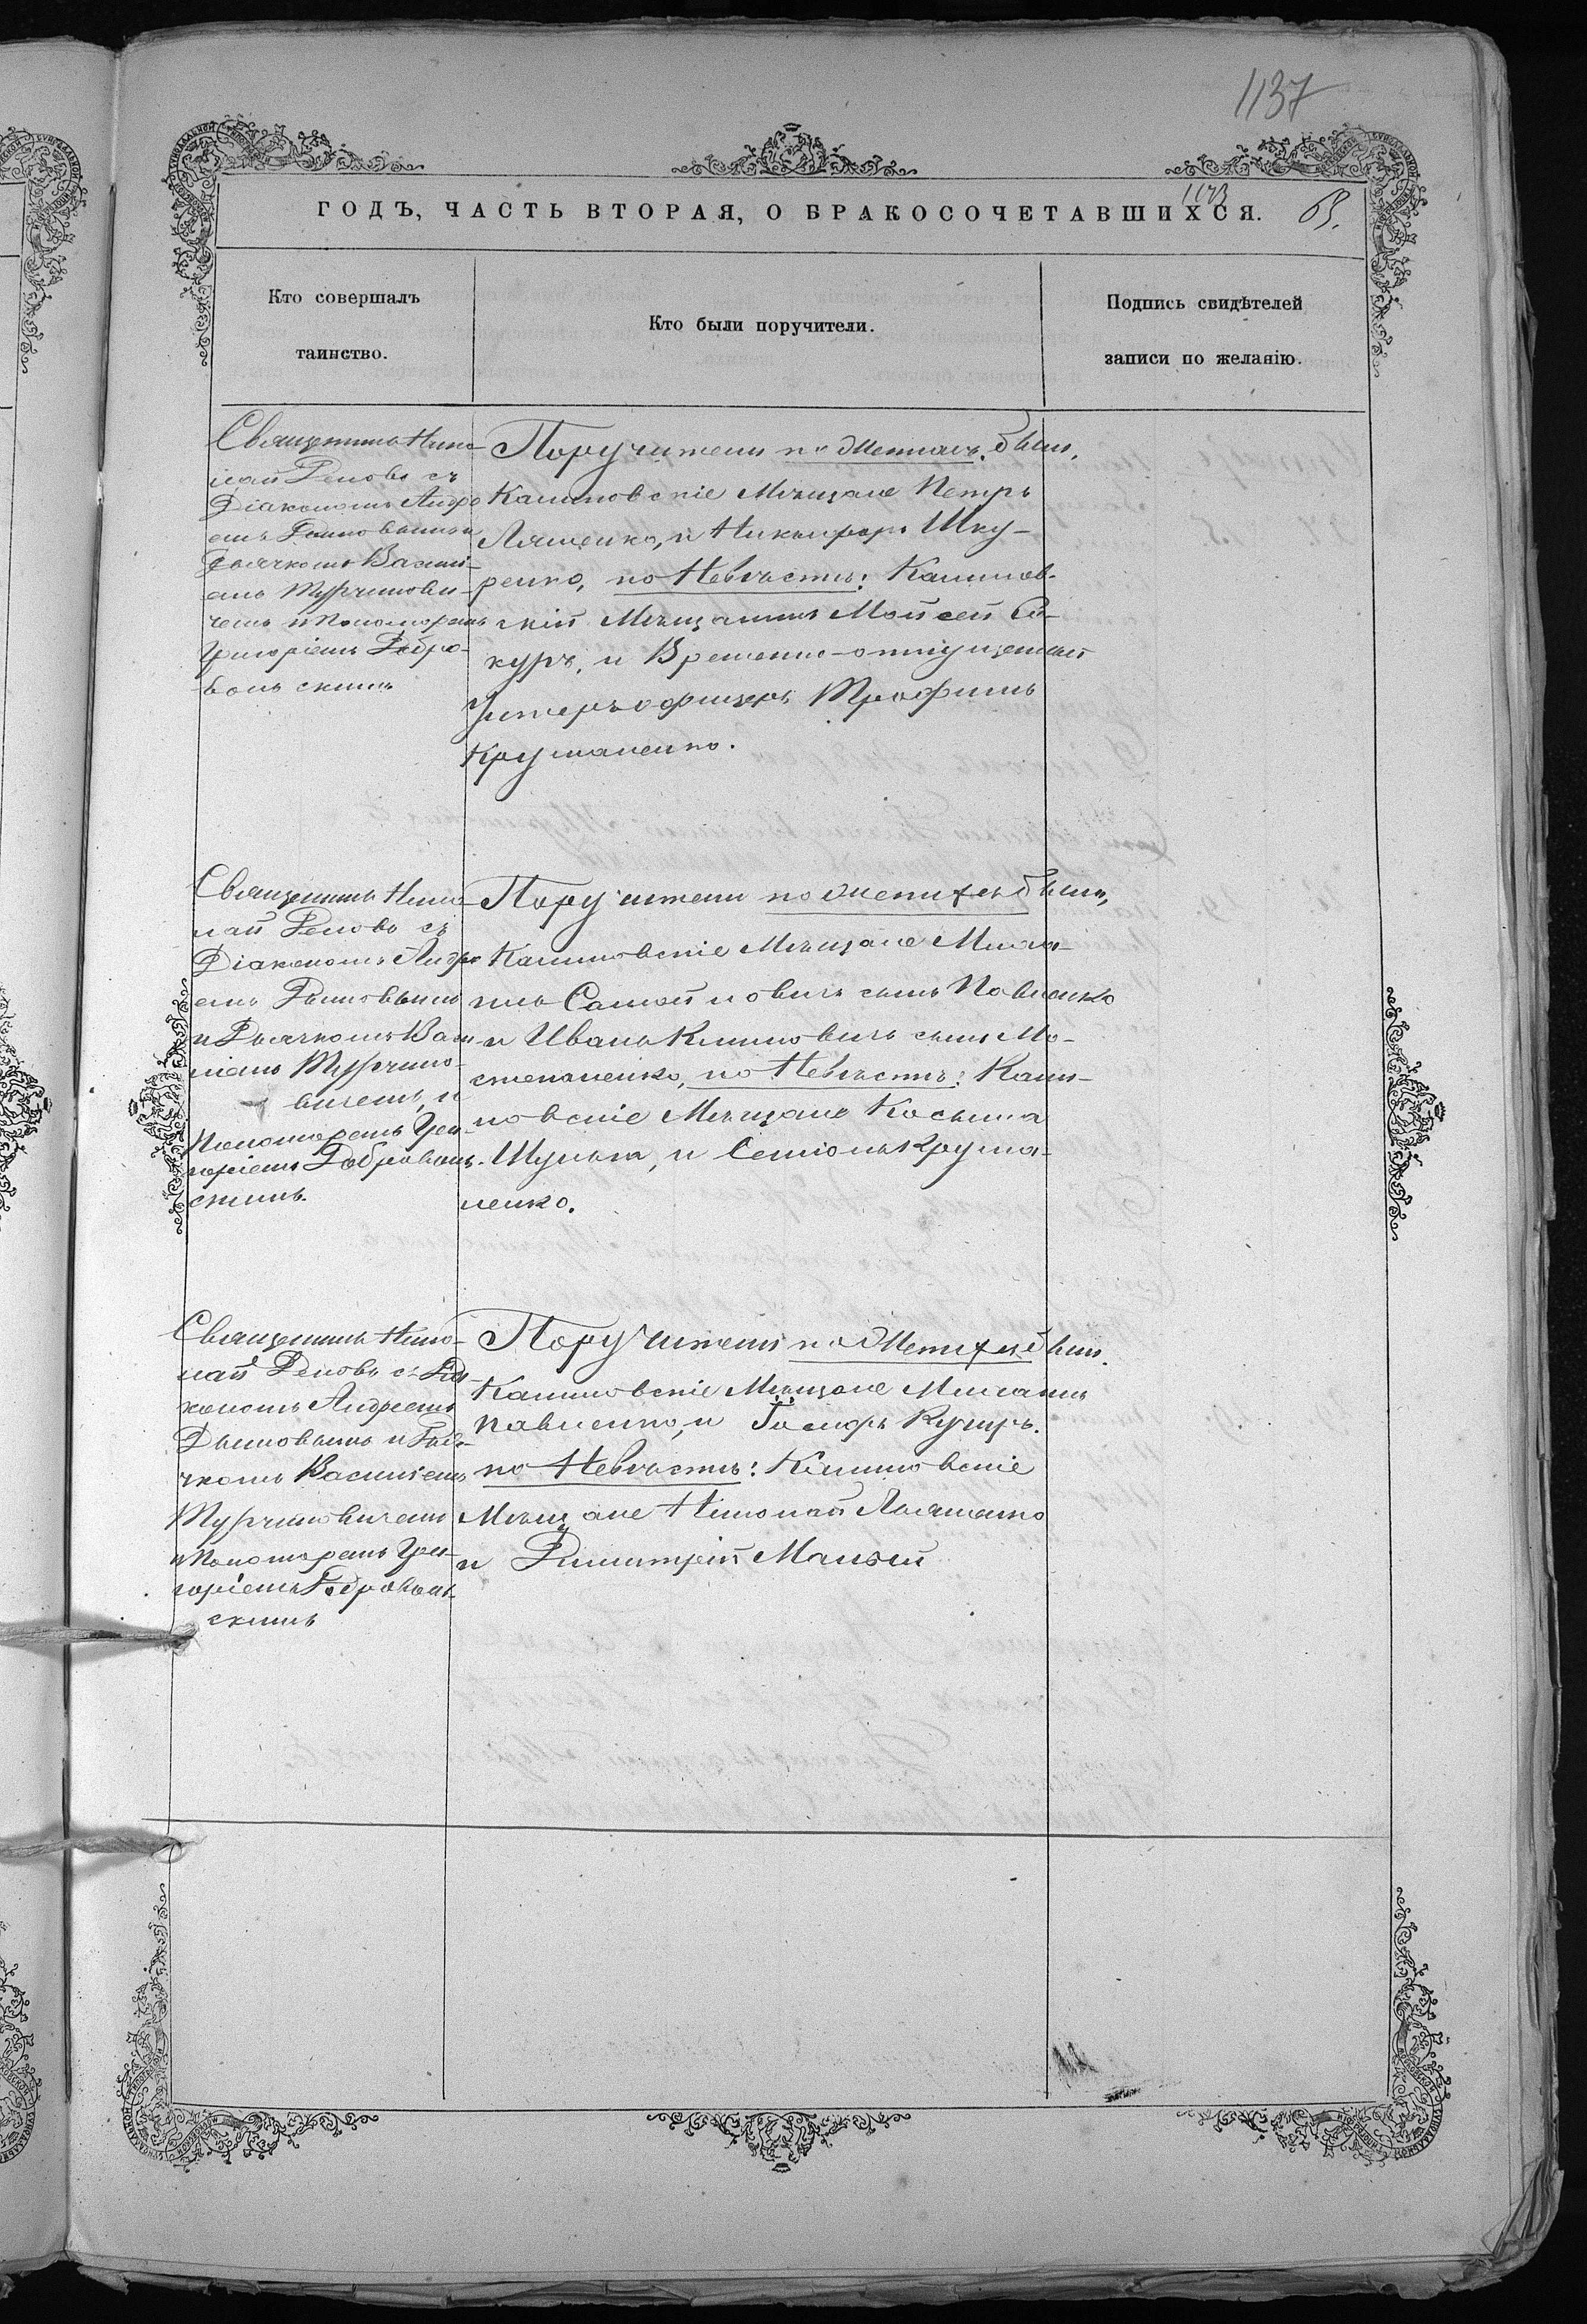 1137
ГОДЪ, ЧАСТЬ ВТОРАЯ, О БРАКОСОЧЕТАВШИХСЯ.
65.
Кто совершалъ
таинство.
Кто были поручители.
Подпись свидѣтелей
записи по желанію.
Священникъ Нико-
лай Рѣновъ съ
Діакономъ Андре
емъ
Дьячкомъ Васи-
емъ Турчинови-
чемъ и Пономаремъ
Григоріемъ Добро-
вольскимъ
Поручители по Женихѣ были,
Калиновскіе Мѣщане Петръ
Ляшенко, и Никифоръ Шку-
ренко, по Невѣстѣ: Калинов-
скій Мѣщанинъ Мойсей Си-
куръ, и Временно-отпущенный
Унтеръ-офицеръ Трофимъ
Круманенко.
Священникъ Нико-
лай съ
Діакономъ Андре
емъ
и Дьячкомъ Васи-
ліемъ Турчино-
вичемъ, и
Пономаремъ Гри-
горіемъ Доброволь-
скимъ.
Поручители по Женихѣ были,
Калиновскіе Мѣщане Миха-
илъ Самойловичъ сынъ Павленко
и Иванъ Климовичъ сынъ Мо-
степаненко, по Невѣстѣ: Кали-
новскіе Мѣщане Косьма
Шульга, и Семіонъ Крума-
ненко.
Священникъ Нико-
лай съ Діа-
кономъ Андреемъ
и Дья-
чкомъ Василіемъ
Турчиновичемъ
и Пономаремъ Гри-
горіемъ Доброволь-
скимъ
Поручители по Женихѣ были.
Калиновскіе Мѣщане Михаилъ
Павленко, и Кушнръ.
по Невѣстѣ: Калиновскіе
Мѣщане Николай Ляшенко
и Димитрій Малый